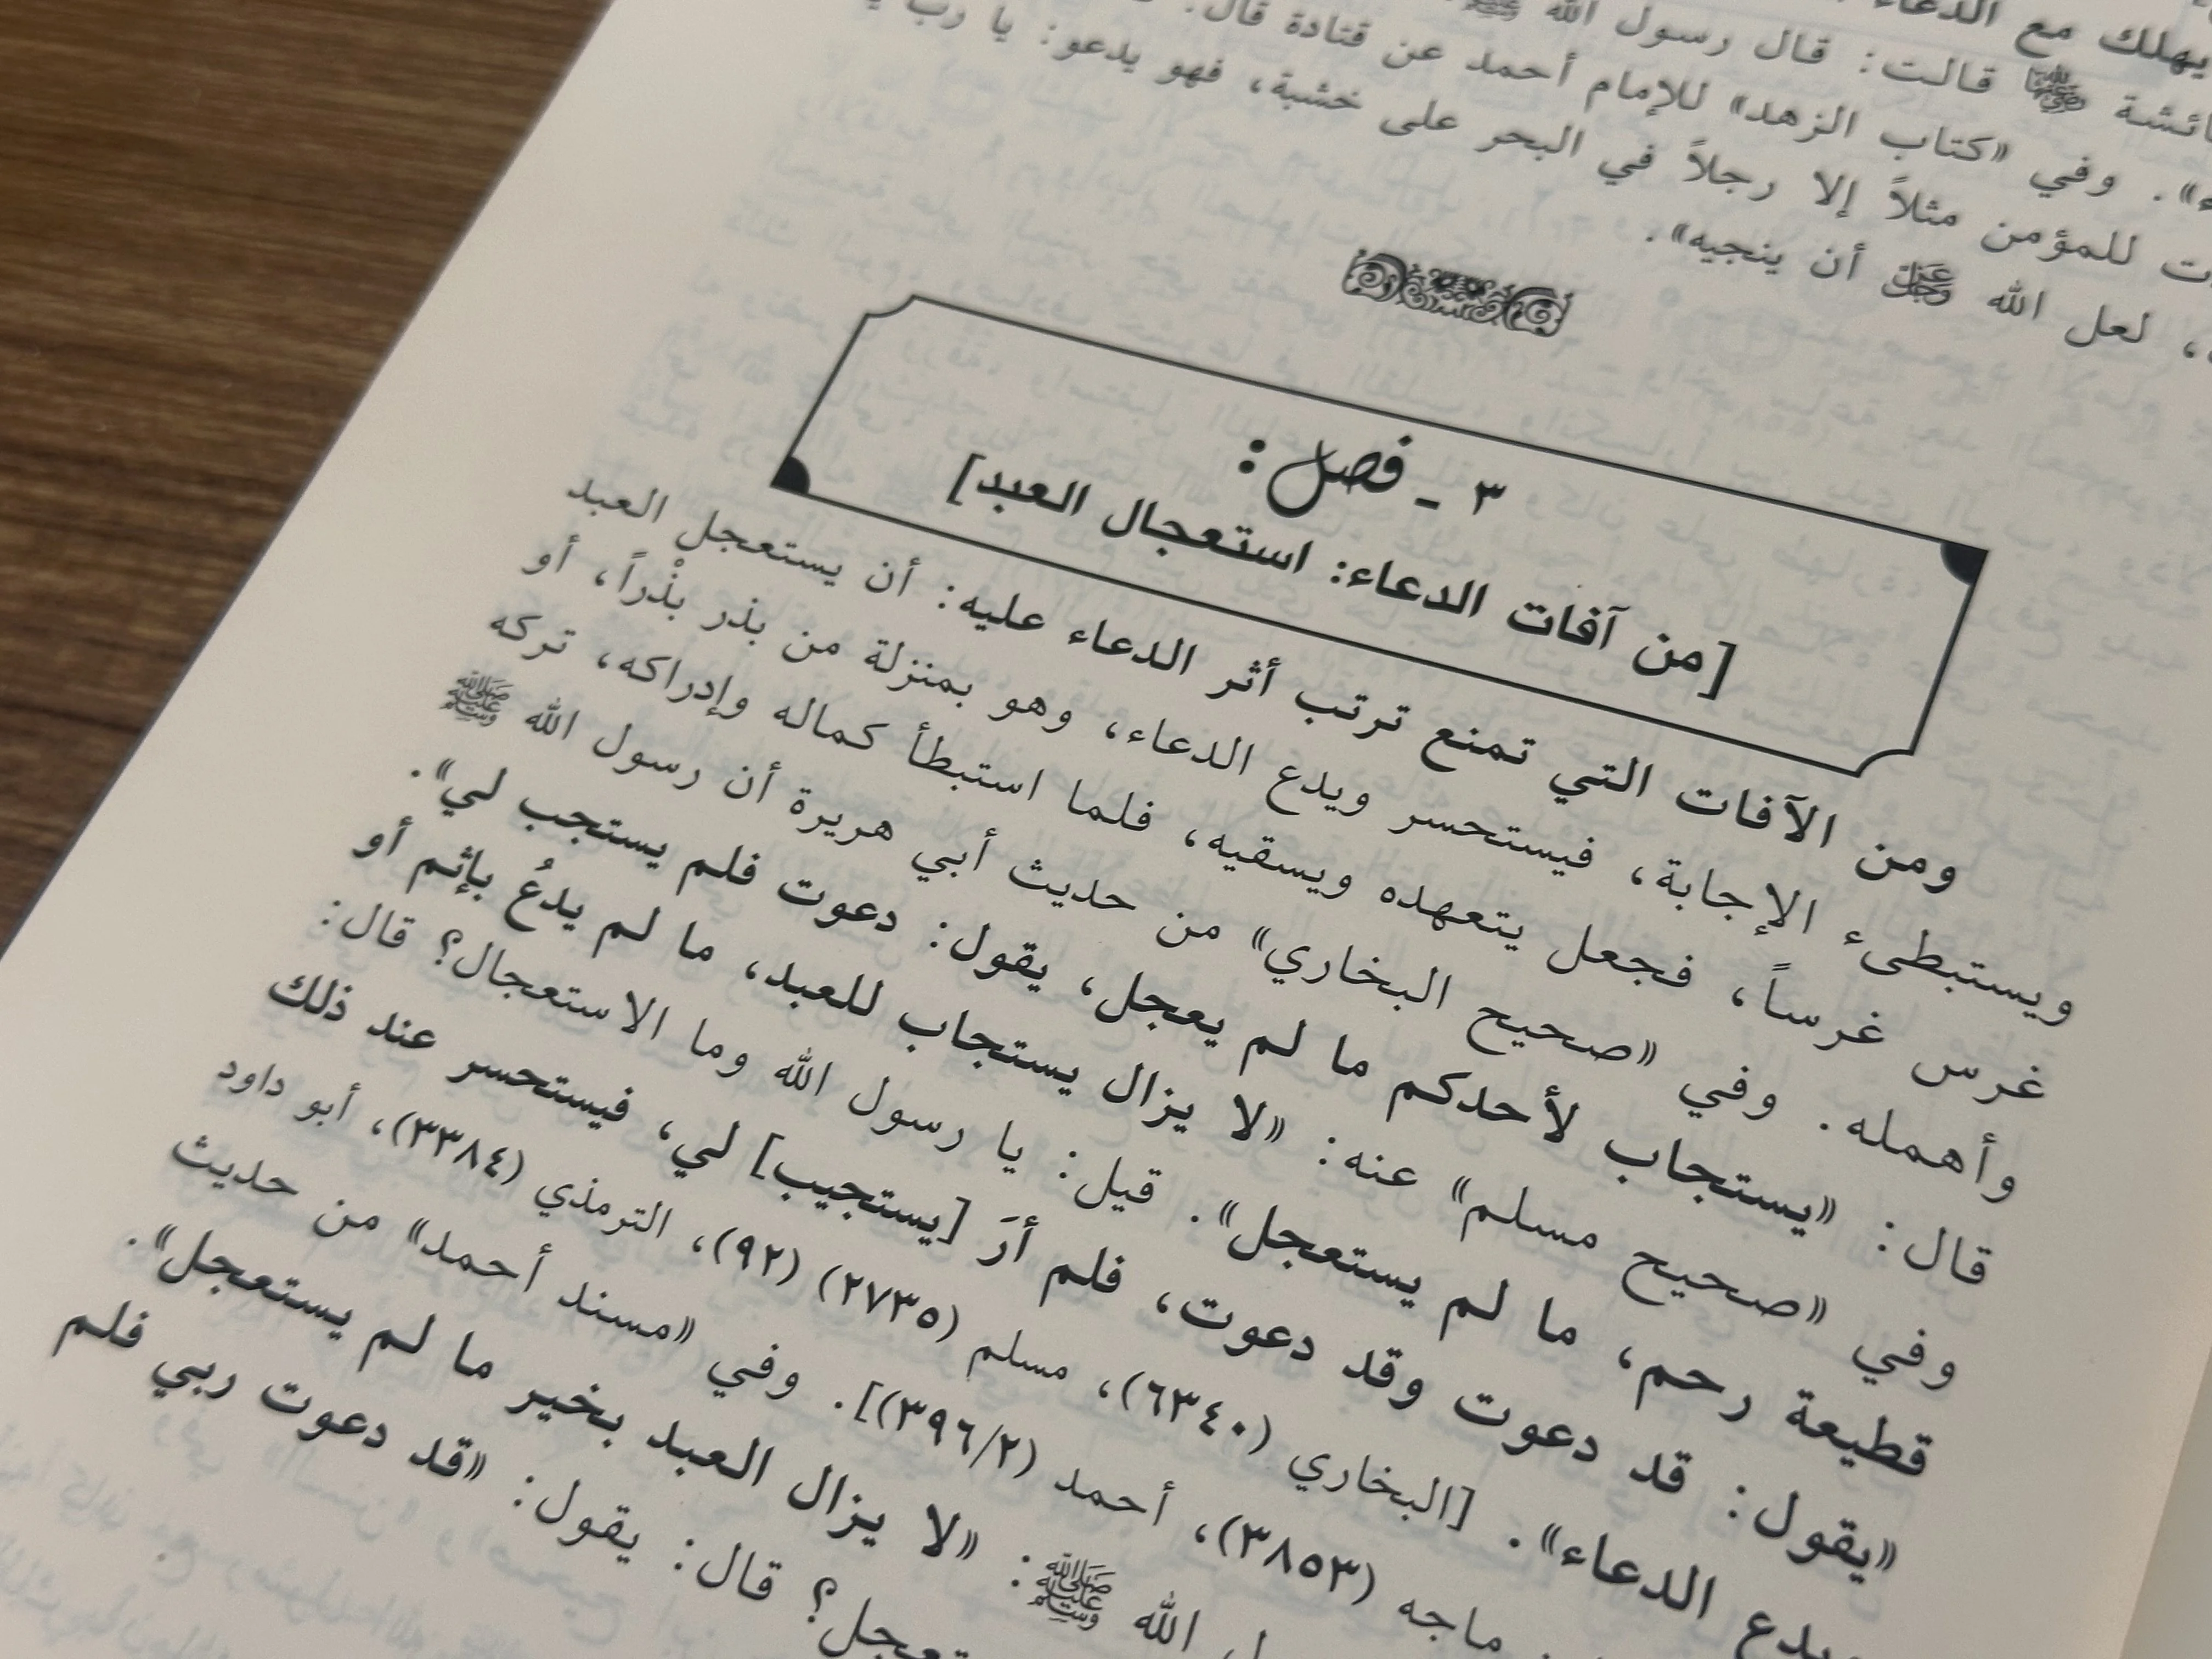 يهلك مع الدعاء
عائشة ﵂ قالت: قال رسول الله ﷺ
». وفي «كتاب الزهد» للإمام أحمد عن قتادة قال:
للمؤمن مثلاً إلا رجلاً في البحر على خشبة، فهو يدعو: يا رب
، لعل الله ﷿ أن ينجيه».
٣ ـ فصل:
[من آفات الدعاء: استعجال العبد]
ومن الآفات التي تمنع ترتب أثر الدعاء عليه: أن يستعجل العبد
ويستبطىء الإجابة، فيستحسر ويدع الدعاء، وهو بمنزلة من بذر بذْراً، أو
غرس غرساً، فجعل يتعهده ويسقيه، فلما استبطأ كماله وإدراكه، تركه
وأهمله. وفي «صحيح البخاري» من حديث أبي هريرة أن رسول الله ﷺ
قال: «يستجاب لأحدكم ما لم يعجل، يقول: دعوت فلم يستجب لي».
وفي «صحيح مسلم» عنه: «لا يزال يستجاب للعبد، ما لم يدعُ بإثم أو
قطيعة رحم، ما لم يستعجل». قيل: يا رسول الله وما الاستعجال؟ قال:
«يقول: قد دعوت وقد دعوت، فلم أرَ [يستجيب] لي، فيستحسر عند ذلك
ويدع الدعاء». [البخاري (٦٣٤٠)، مسلم (٢٧٣٥) (٩٢)، الترمذي (٣٣٨٤)، أبو داود
ماجه (٣٨٥٣)، أحمد (٣٩٦/٢)]. وفي «مسند أحمد» من حديث
الله ﷺ: «لا يزال العبد بخير ما لم يستعجل».
؟ قال: يقول: «قد دعوت ربي فلم